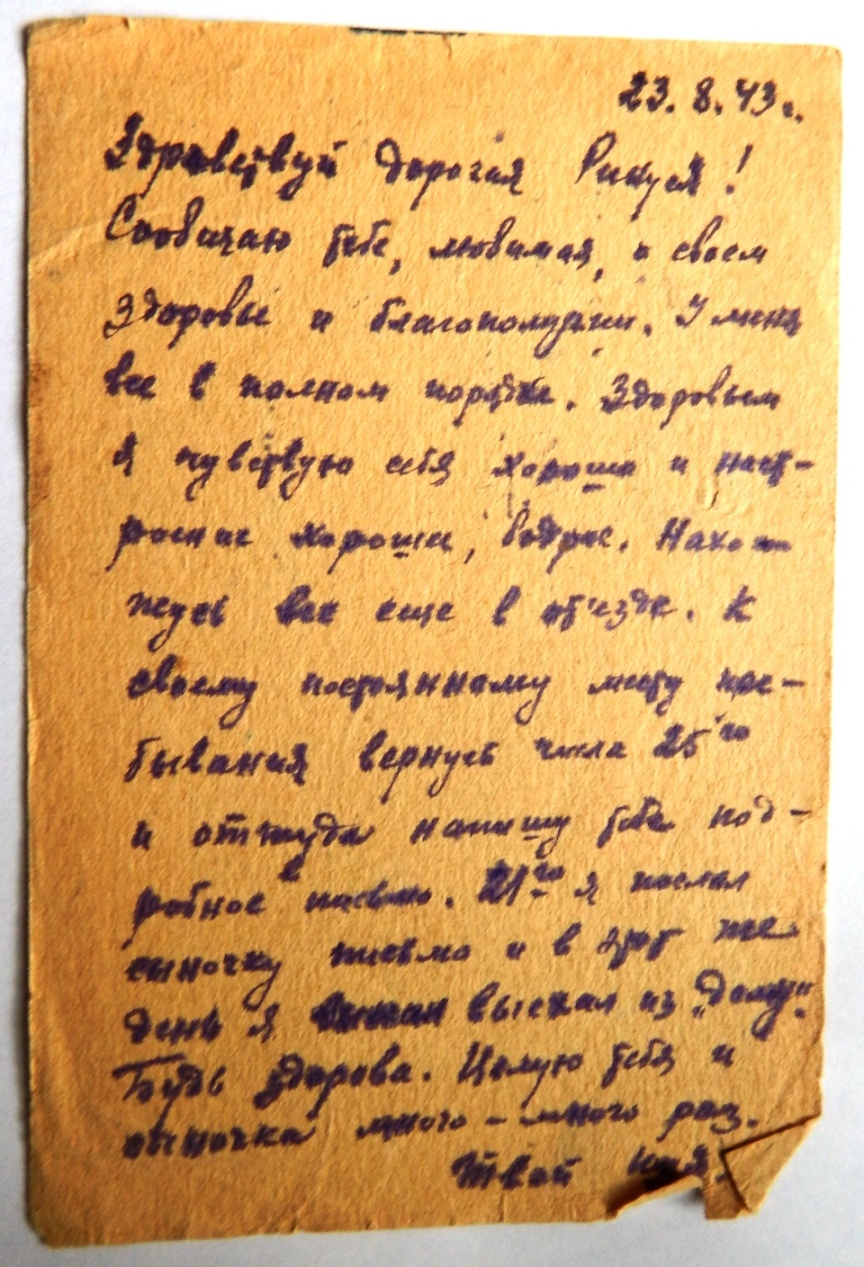 23.8.43 г.
Здравствуй дорогая Рикуся!
Сообщаю тебе, любимая, о своем
здоровье и благополучии. У меня
все в полном порядке. Здоровьем
я чувствую себя хорошо и наст-
роение хорошее, бодрое. Нахо
жусь все еще в от'езде. К
своему постоянному месту пре-
бывания вернусь числа 25го
и оттуда напишу тебе под-
робное письмо. 21го я послал
сыночку письмо и в этот же
день я выехал из „дому".
Будь здорова. Целую тебя и
сыночка много-много раз.
Твой